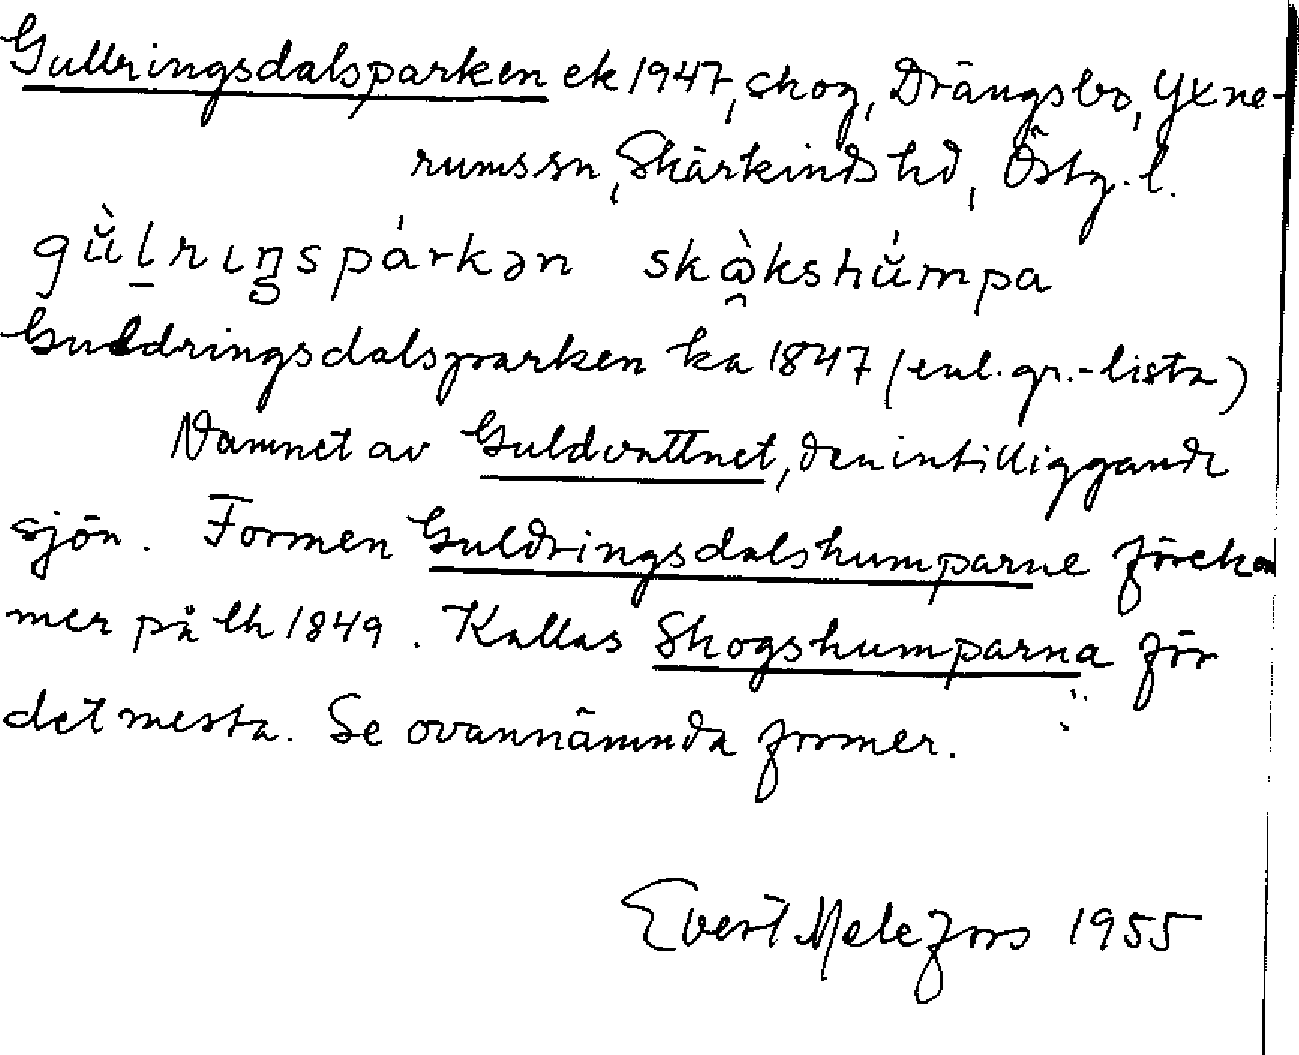 Gullringsdalsparken ek 1947, skog, Drängsbo, Yxne-
rums sn, Skärkinds hd, Östg. l.
gù̆lrıŋspárkən skὼ̯kshú̆mpa
Guldringsdalsparken ka 1847 (enl. gr.-lista)
Namnet av Guldvattnet, den intilliggande
sjön. Formen Guldringsdalshumparne förekom
mer på lh 1849. Kallas Skogshumparna för
det mesta. Se ovannämnda former.
Evert Melefors 1955